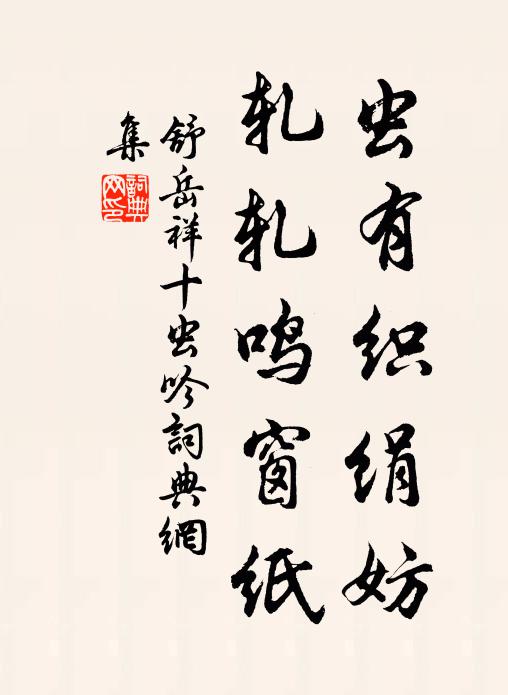 虫有织绢妨
轧轧鸣窗纸
舒岳祥十虫吟詞典網
集
詞典
网印